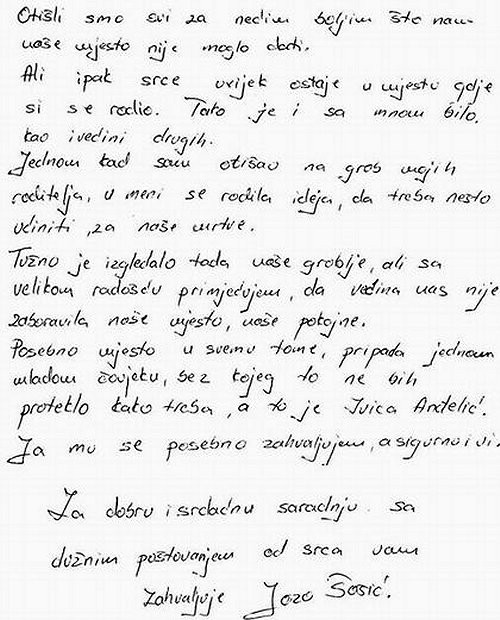 Otišli smo svi za nečim boljim što nam
naše mjesto nije moglo dati.
Ali ipak srce uvijek ostaje u mjestu gdje
si se rodio. Tako je i sa mnom bilo,
kao i većini drugih.
Jednom kad sam otišao na grob mojih
roditelja, u meni se rodila ideja, da treba nešto
učiniti, za naše mrtve.
Tužno je izgledalo tada naše groblje, ali sa
velikom radošću primjećujem, da većina nas nije
zaboravila naše mjesto, naše pokojne.
Posebno mjesto u svemu tome, pripada jednom
mladom čovjeku, bez kojeg to ne bih
proteklo kako treba, a to je Ivica Anđelić.
Ja mu se posebno zahvaljujem, a sigurno i vi.
Za dobru i srdačnu saradnju sa
dužnim poštovanjem od srca vam
zahvaljuje Jozo Šosić.